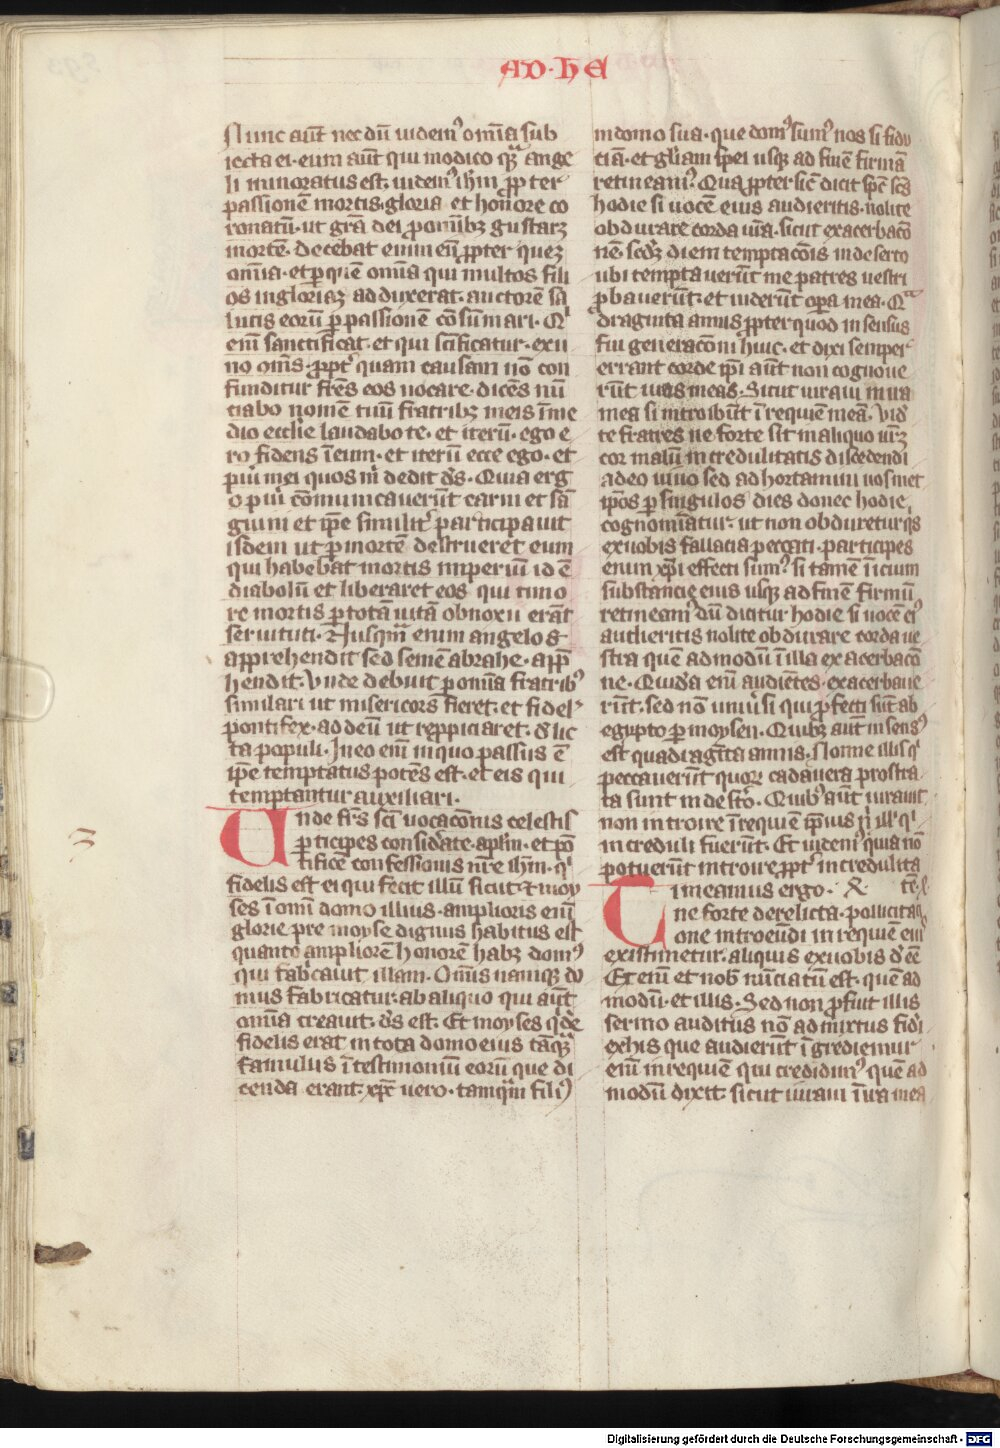 AD · HE
Nunc aūt nec dū uidemꝰ om̄ia sub
iecta ei · eum aūt qui modico qͣ ange
li minoratus est · uidemꝰ ih̄m ꝓpter
passionē mortis · gloria et honore co
ronatū · ut grā dei ꝓ om̄ibꝫ gustarꝫ
mortē · decebat enim eū ꝓpter queꝫ
om̄ia · et ꝑ quē om̄ia qui multos fili
os in gloriaꝫ adduxerat · auctorē sa
lutis eorū ꝑ passionē cōsummari · Qͥ
em̄ sanctificat · et qui sc̄ificatur · ex u
no om̄s · ꝓptͬ quam causam nō con
funditur fr̄es eos uocare · dicēs nū
tiabo nomē tuū fratribꝫ meis ī me
dio eccl̄ie laudabo te · et iterū · ego e
ro fidens ī eum · et iterū ecce ego · et
pūi mei quos m̄ dedit d̄s · Quia erg
o pūi cōmunicauerūt carni et sā
guini et ip̄e similitͬ participauit
isdem ut ꝑ mortē destrueret eum
qui habebat mortis imperiū id ē
diabolū et liberaret eos qui timo
re mortis ꝑ totā uitā obnoxii erāt
seruituti · Nusqͣm enim angelos
apprehendit sed semē abrahe · app̄
hendit · Unde debuit ꝑ om̄ia fratribꝰ
similari ut misericors fieret · et fidel
pontifex · ad deū ut reppiciaret · d̄lic
ta populi · In eo em̄ in quo passus ē
ip̄e temptatus potēs est · et eis qui
temptantur auxiliari ·
Unde fr̄s sc̄i uocacōnis celestis
ꝑticipes considerate · apl̄m · et pō
tificē confessionis nr̄e ih̄m · qͥ
fidelis est ei qui fecit illū sicut · et moy
ses ī om̄i domo illius · amplioris em̄
glorie pre moyse dignus habitus est
quanto ampliorē honorē habꝫ domꝰ
qui fab̄cauit illam · Om̄is namqꝫ do
mus fabricatur · ab aliquo qui aūt
om̄ia creauit · d̄s est · Et moyses qͥde
fidelis erat in tota domo eius tāqͣ
famulus ī testimoniū eorū que di
cenda erant · xp̄c uero · tamqͣm filiꝰ
3
in domo sua · que domꝰ sumꝰ nos si fidu
tiā · et gl̄iam spei usqꝫ ad finē firmā
retineamꝰ · Quapꝓpter sic̄ dicit sp̄c sc̄s
hodie si uocē eius audieritis · nolite
obdurare corda ur̄a · sicut exacerbacō
nē · scd̄ꝫ diem temptacōis in deserto
ubi temptauerūt me patres uestri
ꝓbauerūt · et uiderūt oꝑa mea · Qͣ
draginta annis ꝓpter quod infensus
fui generacōni huic · et dixi semper
errant corde ip̄i aūt non cognoue
rūt uias meas · Sicut iuraui in ira
mea si introibūt ī requiē meā · Vid
te fratres ne forte sit in aliquo ur̄ꝫ
cor malū incredulitatis discedendi
a deo uiuo sed adhortamini uosmet
ip̄os ꝑ singulos dies donec hodie
cognomīatur · ut non obduretur qͥs
ex uobis fallacia peccati · participes
enim xp̄i effecti sumꝰ si tamē īicium
substancie eius usqꝫ ad finē firmū
retineamꝰ dū dicitur hodie si uocē eiꝰ
audieritis nolite obdurare corda ue
stra quē admodū ī illa exacerbacō
ne · Quida em̄ audiētes · exacerbaue
rūt · sed nō uniūsi qui ꝓfecti sūt ab
egypto ꝑ moysen · Quibꝫ aūt infensꝰ
est quadragīta annis · Nonne illis qͥ
peccauerūt quorꝫ cadauera prostra
ta sunt in desto · Quibꝰ aūt iurauit
non introire ī requiē ip̄ius n̄ ill' qͥ
increduli fuerūt · Et uidemꝰ quia nō
potuerūt introire ꝓptͬ incredulita
Timeamus ergo · tē
ne forte derelicta · pollicitaci
one introeūdi in requiē eiꝰ
existimetur · aliquis ex uobis d̄eē
Et em̄ et nob̄ nūciatū est · quē ad
modū · et illis · Sed non ꝓfuit illis
sermo auditus nō admixtus fid̄i
ex his que audierūt īgrediemur
em̄ in requiē qui credidimꝰ quē ad
modū dixit · sicut iuraui ī ira mea
Digitalisierung gefördert durch die Deutsche Forschungsgemeinschaft · DFG